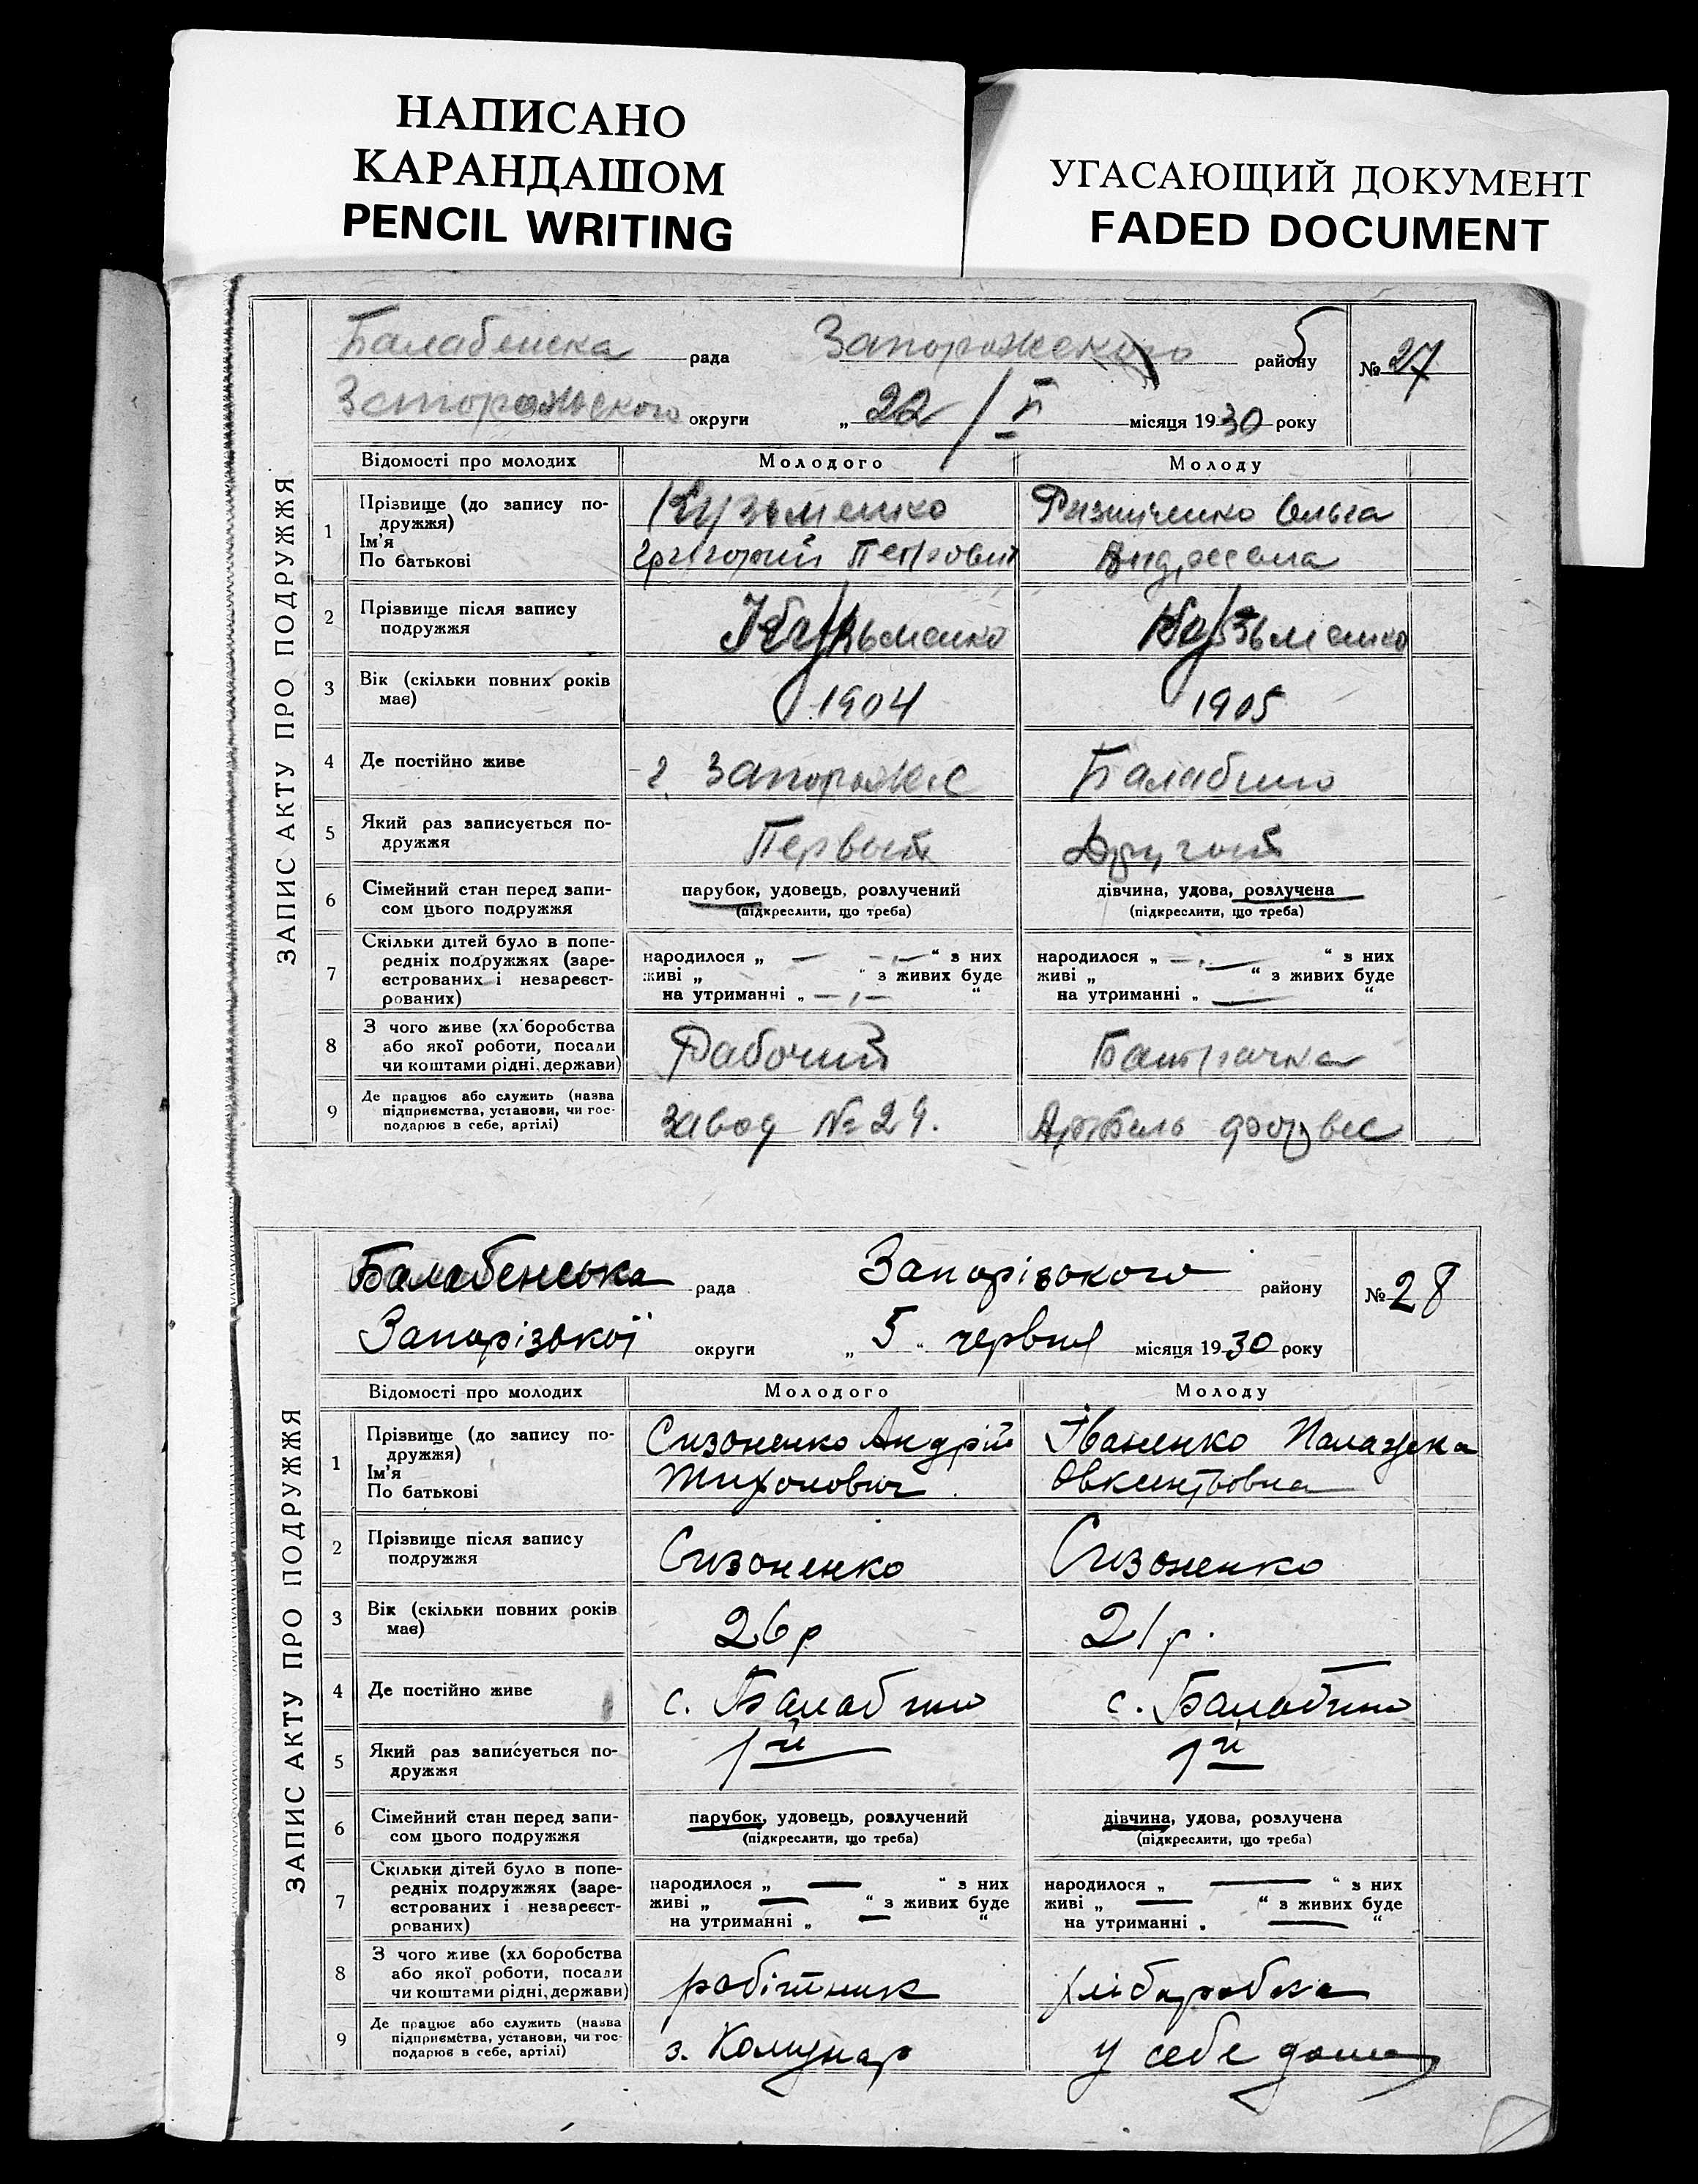 НАПИСАНО
КАРАНДАШОМ
PENCIL WRITING
УГАСАЮЩИЙ ДОКУМЕНТ
FADED DOCUMENT
ЗАПИС АКТУ ПРО ПОДРУЖЖЯ
Балабенска рада Запорожского району 5 № 27
Запорожского округи „ 22 / V місяця 1930 року
Відомості про молодих Молодого Молоду
1 Прізвище (до запису по-
дружжя)
Ім'я
По батькові
Кузьменко
Григорий Петрович
Ризниченко Ольга
Андреевна
2 Прізвище після запису
подружжя
Кузьменко Кузьменко
3 Вік (скільки повних років
має)
1904 1905
4 Де постійно живе г. Запорожже Балабино
5 Який раз записується по-
дружжя
Первый Другой
6 Сімейний стан перед запи-
сом цього подружжя
парубок, удовець, розлучений
(підкреслити, що треба)
дівчина, удова, розлучена
(підкреслити, що треба)
7 Скільки дітей було в попе-
редніх подружжях (заре-
єстрованих і незареєст-
рованих)
народилося „ — - „ — “ з них
живі „ “ з живих буде
на утриманні „ — „ — “
народилося „ — „ — “ з них
живі „ “ з живих буде
на утриманні „ — “
8 З чого живе (хл боробства
або якої роботи, посади
чи коштами рідні, держави)
Рабочий Батрачка
9 Де працює або служить (назва
підприємства, установи, чи гос-
подарює в себе, артілі)
Завод № 29. Артель
ЗАПИС АКТУ ПРО ПОДРУЖЖЯ
Балабенська рада Запорізького району № 28
Запорізької округи „ 5 “ червня місяця 1930 року
Відомості про молодих Молодого Молоду
1 Прізвище (до запису по-
дружжя)
Ім'я
По батькові
Сизоненко Андрій
Тихонович
Іваненко Палажка
Овксентьовна
2 Прізвище після запису
подружжя
Сизоненко Сизоненко
3 Вік (скільки повних років
має)
26 р 21 р.
4 Де постійно живе с. Балабино с. Балабино
5 Який раз записується по-
дружжя
1й 1й
6 Сімейний стан перед запи-
сом цього подружжя
парубок, удовець, розлучений
(підкреслити, що треба)
дівчина, удова, розлучена
(підкреслити, що треба)
7 Скільки дітей було в попе-
редніх подружжях (заре-
єстрованих і незареєст-
рованих)
народилося „ — “ з них
живі „ — “ з живих буде
на утриманні „ — “
народилося „ — “ з них
живі „ — “ з живих буде
на утриманні „ — “
8 З чого живе (хл боробства
або якої роботи, посади
чи коштами рідні, держави)
робітник хліборобка
9 Де працює або служить (назва
підприємства, установи, чи гос-
подарює в себе, артілі)
з. Комунар у себе дома